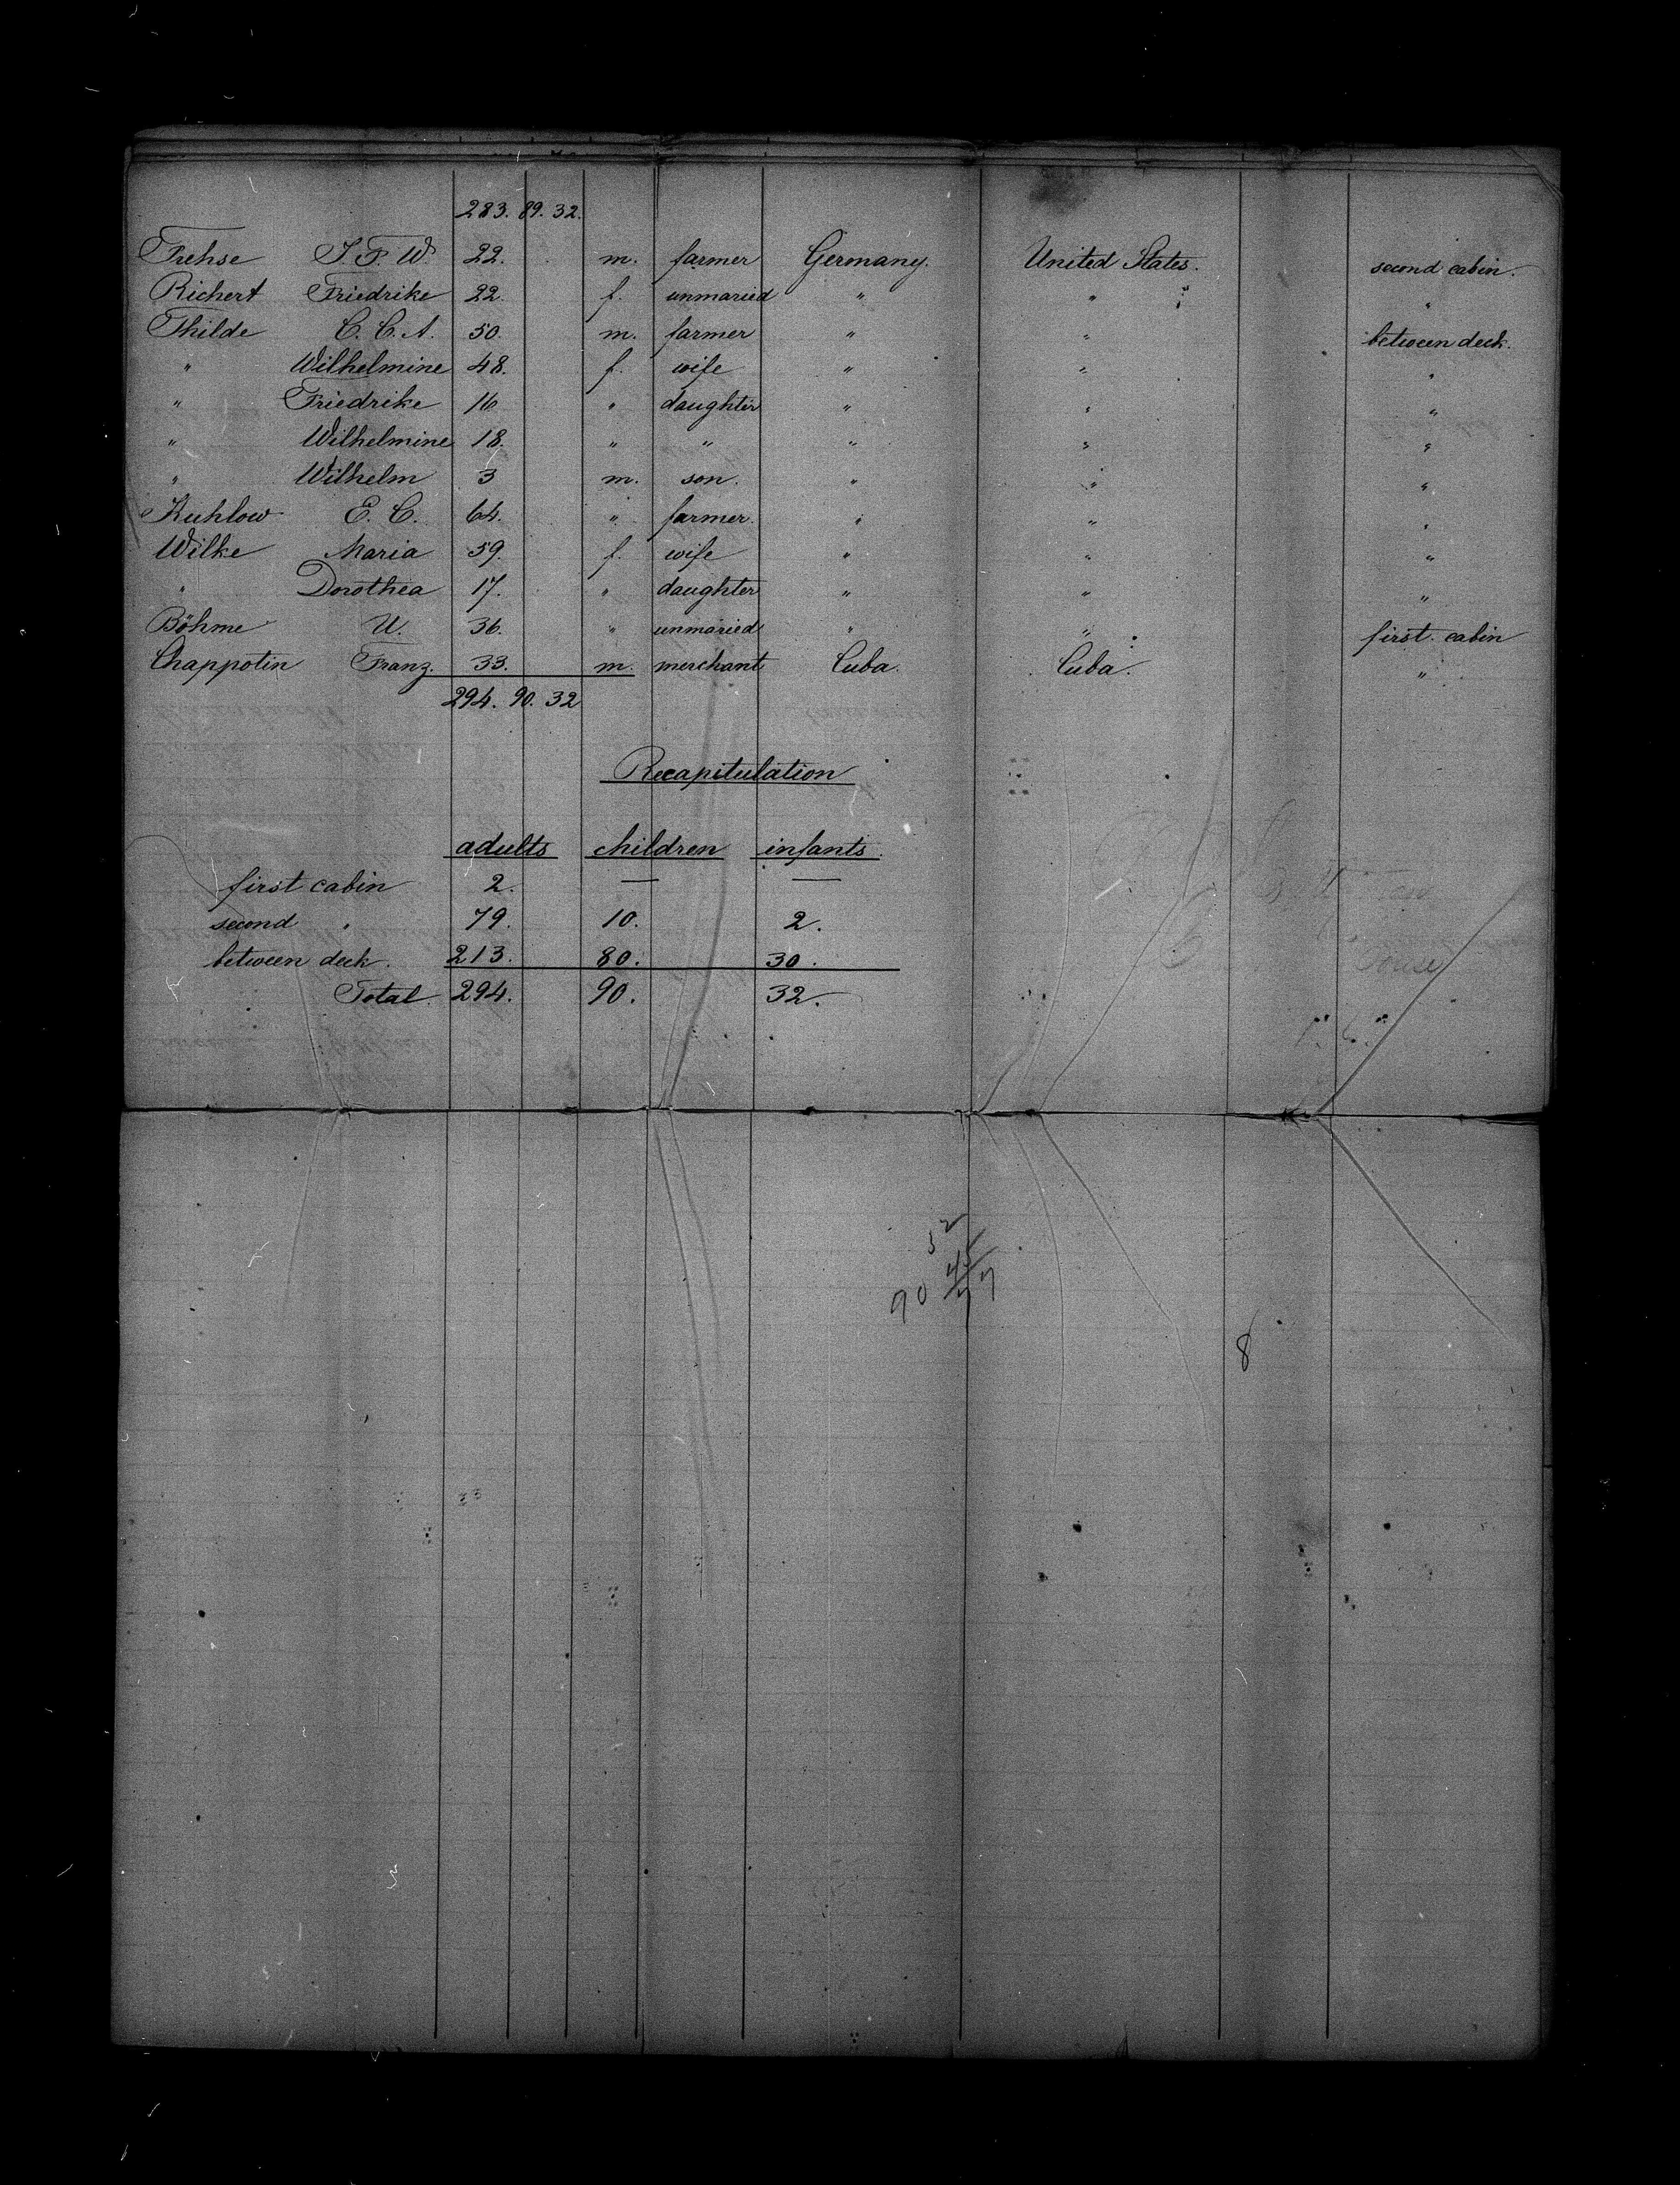 283. 89. 32.
Frehse J. F. W. 22. m. farmer Germany. United States. second cabin.
Richert Friedrike 22. f. unmaried " " "
Thilde C. C. A. 50. m. farmer " " between deck.
" Wilhelmine 48. f. wife " " "
" Friedrike 16 " daughter " " "
" Wilhelmine 18. " " " " "
" Wilhelm 3 m. son. " " "
Kuhlow E. C. 64. " farmer. " " "
Wilke Maria 59. f. wife " " "
" Dorothea 17. " daughter " " "
Böhme U. 36. " unmaried " " first cabin
Chappotin Franz. 33. m. merchant Cuba. Cuba. "
294. 90. 32
Recapitulation
adults children infants.
first cabin 2. — —
second " 79. 10. 2.
between deck. 213. 80. 30.
Total 294. 90. 32.
90
8